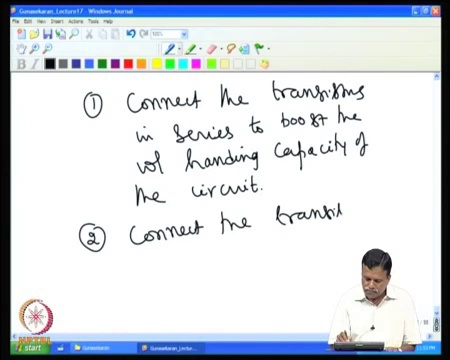 Gunasekaran_Lecture17 - Windows Journal
File Edit View Insert Actions Tools Help
① Connect the transistors
in series to boost the
vol handing capacity of
the circuit.
② Connect the transis
NPTEL
start Gunasekaran Gunasekaran_Lectur...